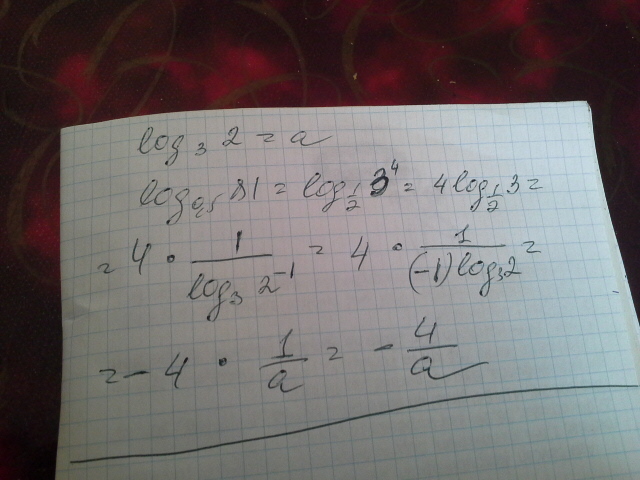 log₃ 2 = a
log₀,₅ 81 = log_{1/2} 3⁴ = 4 log_{1/2} 3 =
= 4 · 1/(log₃ 2⁻¹) = 4 · 1/((-1) log₃ 2) =
= -4 · 1/a = -4/a